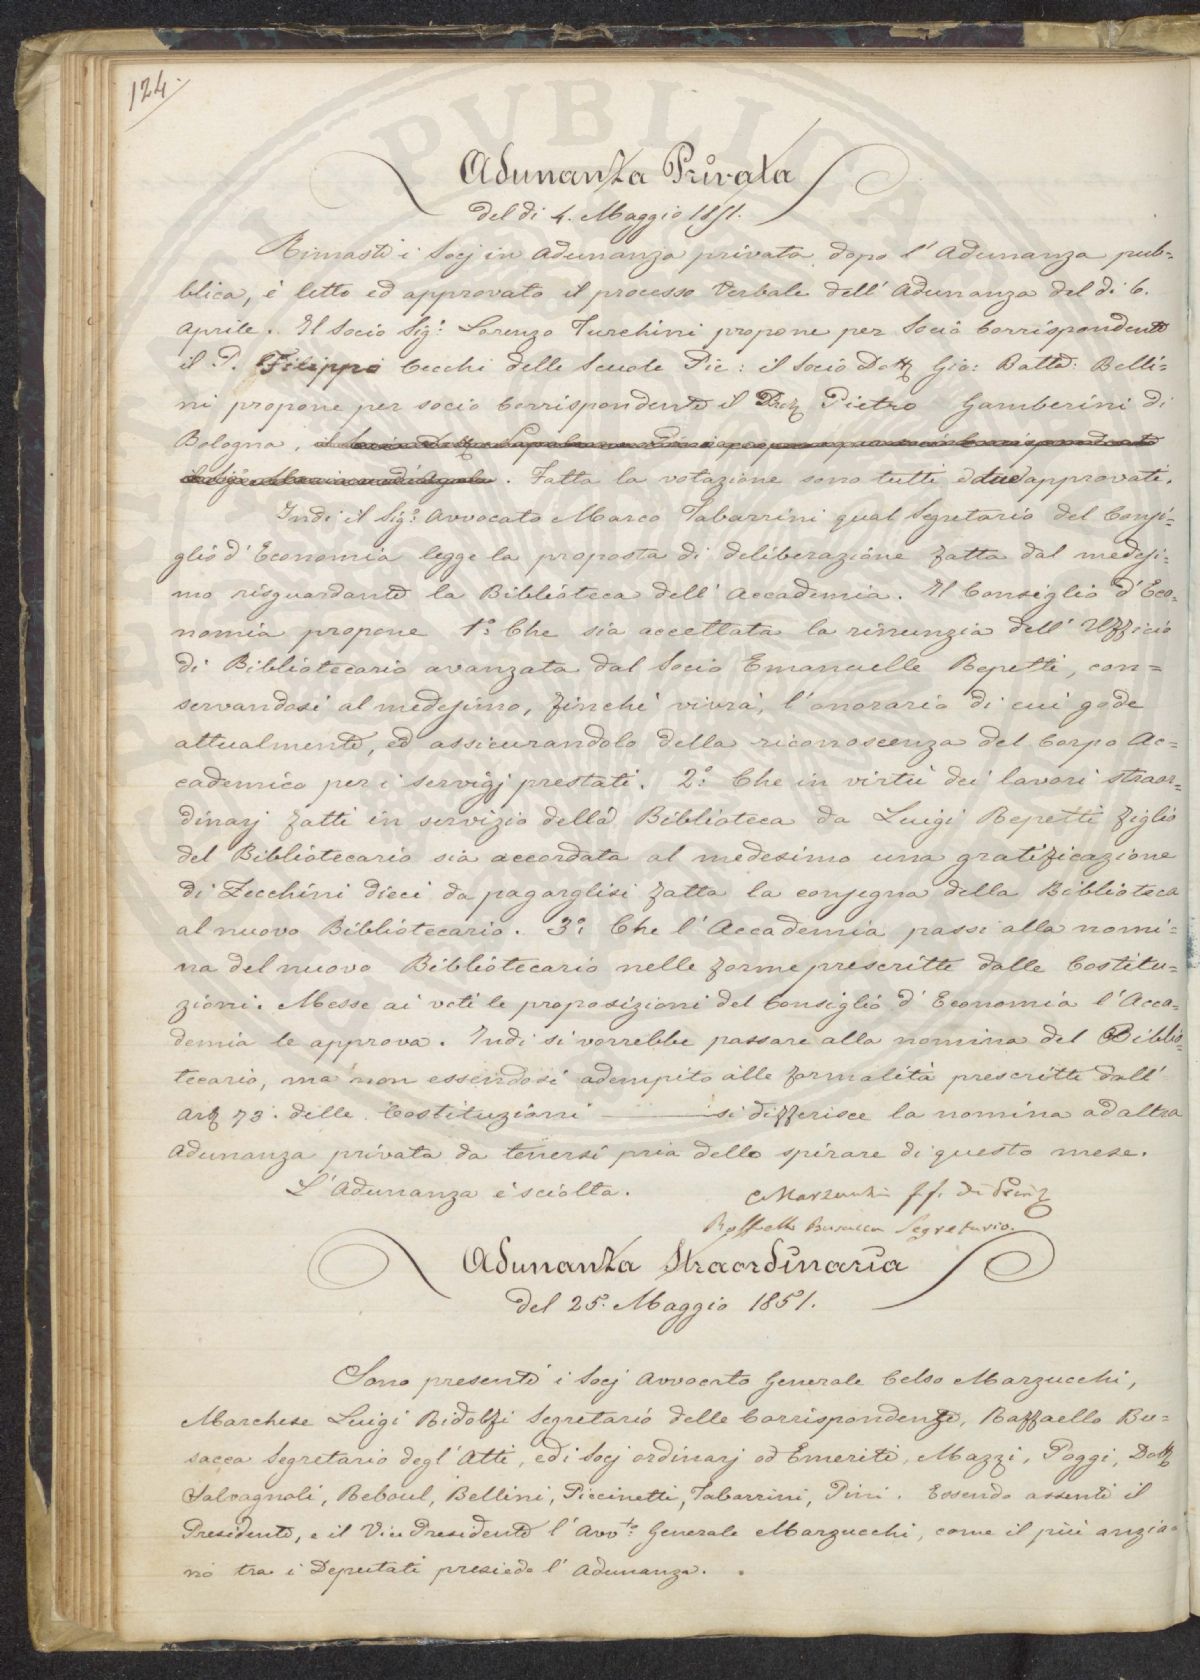 124.
Adunanza Privata
del dì 4. Maggio 1851.
Rimasti i Socj in Adunanza privata dopo l'Adunanza pub=
blica, è letto ed approvato il processo Verbale dell'Adunanza del dì 6.
Aprile. Il Socio Sig: Lorenzo Turchini propone per Socio Corrispondente
il P. Filippo Cecchi delle Scuole Pie: il Socio Dott Gio: Batta: Belli=
ni propone per socio Corrispondente il Pietro Gamberini di
Bologna,
. Fatta la votazione sono tutti e due approvati.
Indi il Sig: Avvocato Marco Tabarrini qual Segretario del Consi=
glio d'Economia legge la proposta di deliberazione fatta dal medesi=
mo risguardante la Biblioteca dell'Accademia. Il Consiglio d'Eco=
nomia propone 1.º Che sia accettata la rinunzia dell'Uffizio
di Bibliotecario avanzata dal Socio Emanuelle Repetti, con=
servandosi al medesimo, finchè vivrà, l'onorario di cui gode
attualmente, ed assicurandolo della riconoscenza del Corpo Ac=
cademico per i servigj prestati. 2.º Che in virtù dei lavori straor=
dinarj fatti in servizio della Biblioteca da Luigi Repetti figlio
del Bibliotecario sia accordata al medesimo una gratificazione
di Zecchini dieci da pagarglisi fatta la consegna della Biblioteca
al nuovo Bibliotecario. 3.º Che l'Accademia passi alla nomi=
na del nuovo Bibliotecario nelle forme prescritte dalle Costitu=
zioni. Messe ai voti le proposizioni del Consiglio d'Economia l'Acca=
demia le approva. Indi si vorrebbe passare alla nomina del Biblio=
tecario, ma non essendosi adempito alle formalità prescritte dall'
Art 73. delle Costituzioni ——— si differisce la nomina ad altra
Adunanza privata da tenersi pria dello spirare di questo mese.
L'Adunanza è sciolta.
C Marzucchi f.f. di
Raffaello Busacca Segretario.
Adunanza Straordinaria
del 25. Maggio 1851.
Sono presenti i Socj Avvocato Generale Celso Marzucchi,
Marchese Luigi Ridolfi Segretario delle Corrispondenze, Raffaello Bu=
sacca Segretario degl'Atti, ed i Socj ordinarj od Emeriti, Mazzi, Poggi, Dott
Salvagnoli, Reboul, Bellini, Piccinetti, Tabarrini, Pini. Essendo assenti il
Presidente, e il Vice Presidente l'Avv.to Generale Marzucchi, come il più anzia=
no tra i Deputati presiede l'Adunanza.
PUBLICA